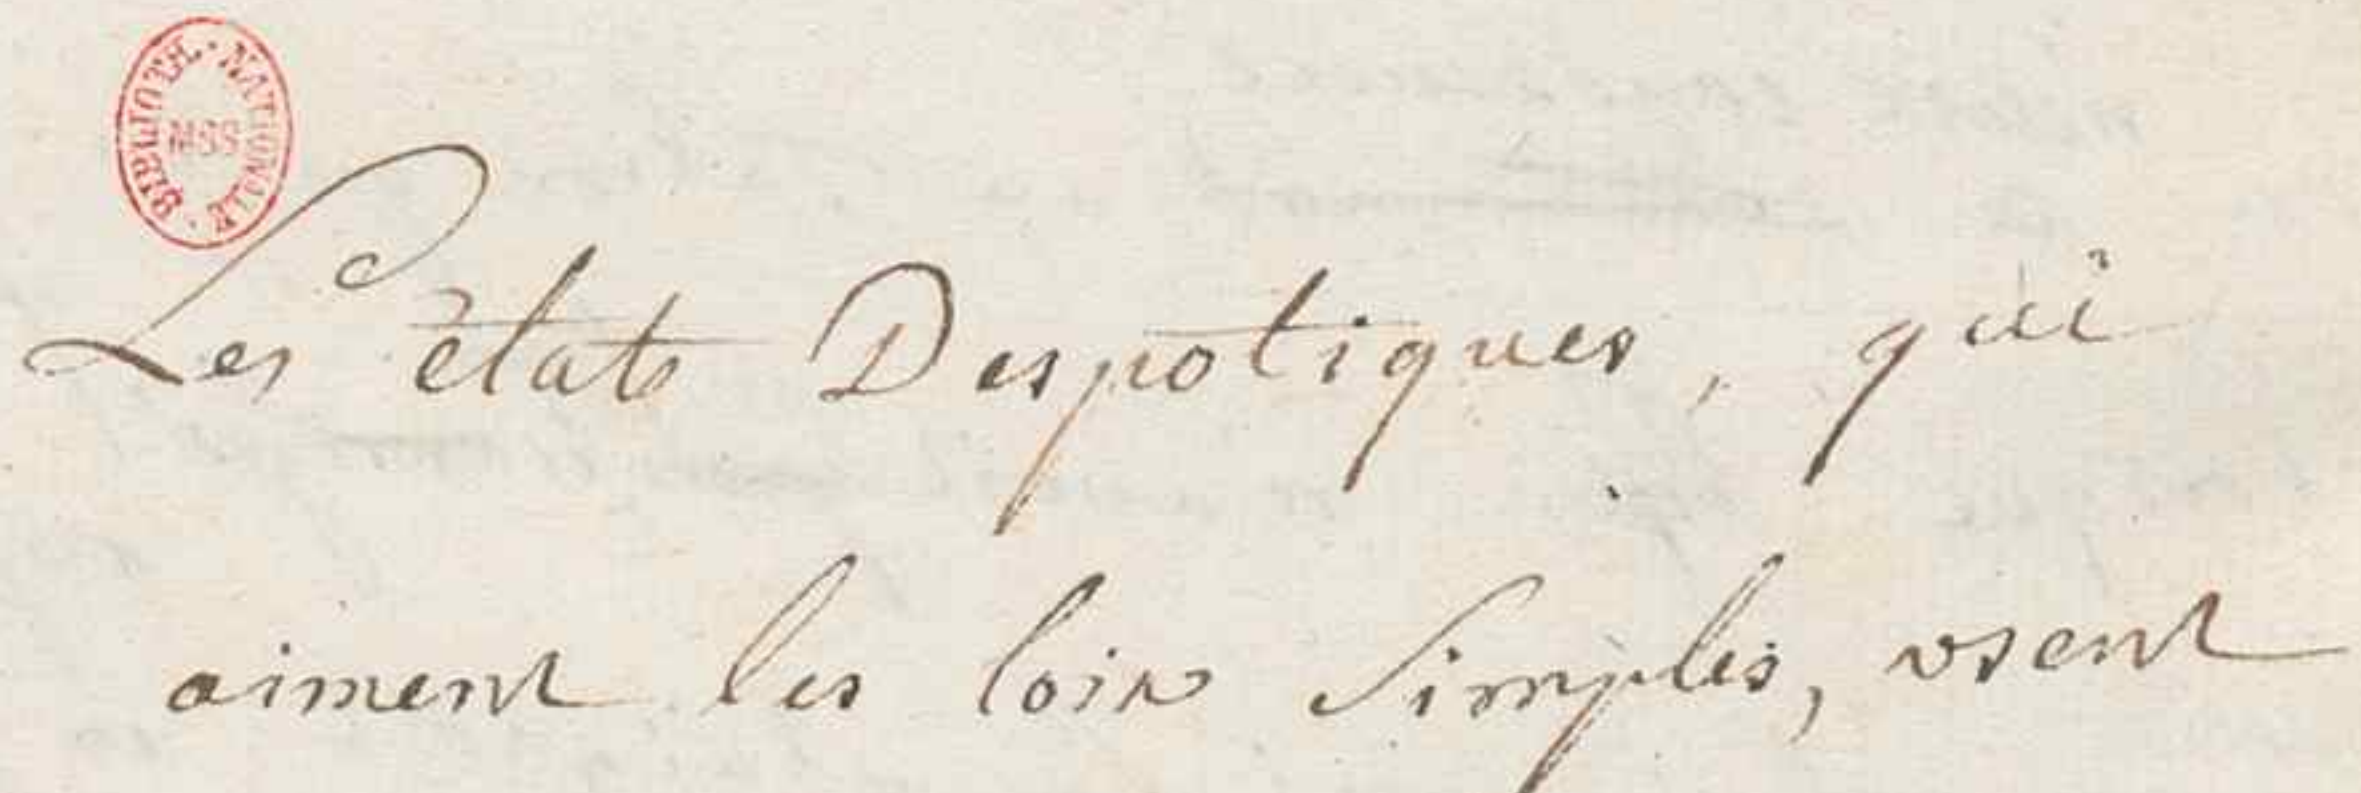 BIBLIOTH. NATIONALE
MSS
Les états Despotiques, qui
aiment les loix Simples, usent